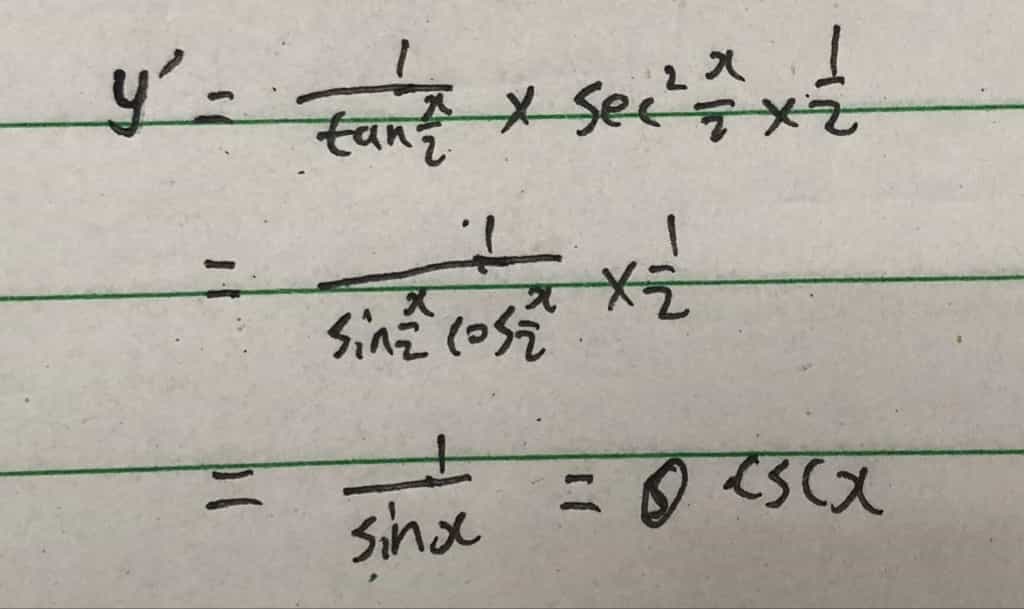 y' = 1/tan x/2 × sec² x/2 × 1/2
= 1/sin x/2 cos x/2 × 1/2
= 1/sinx = cscx